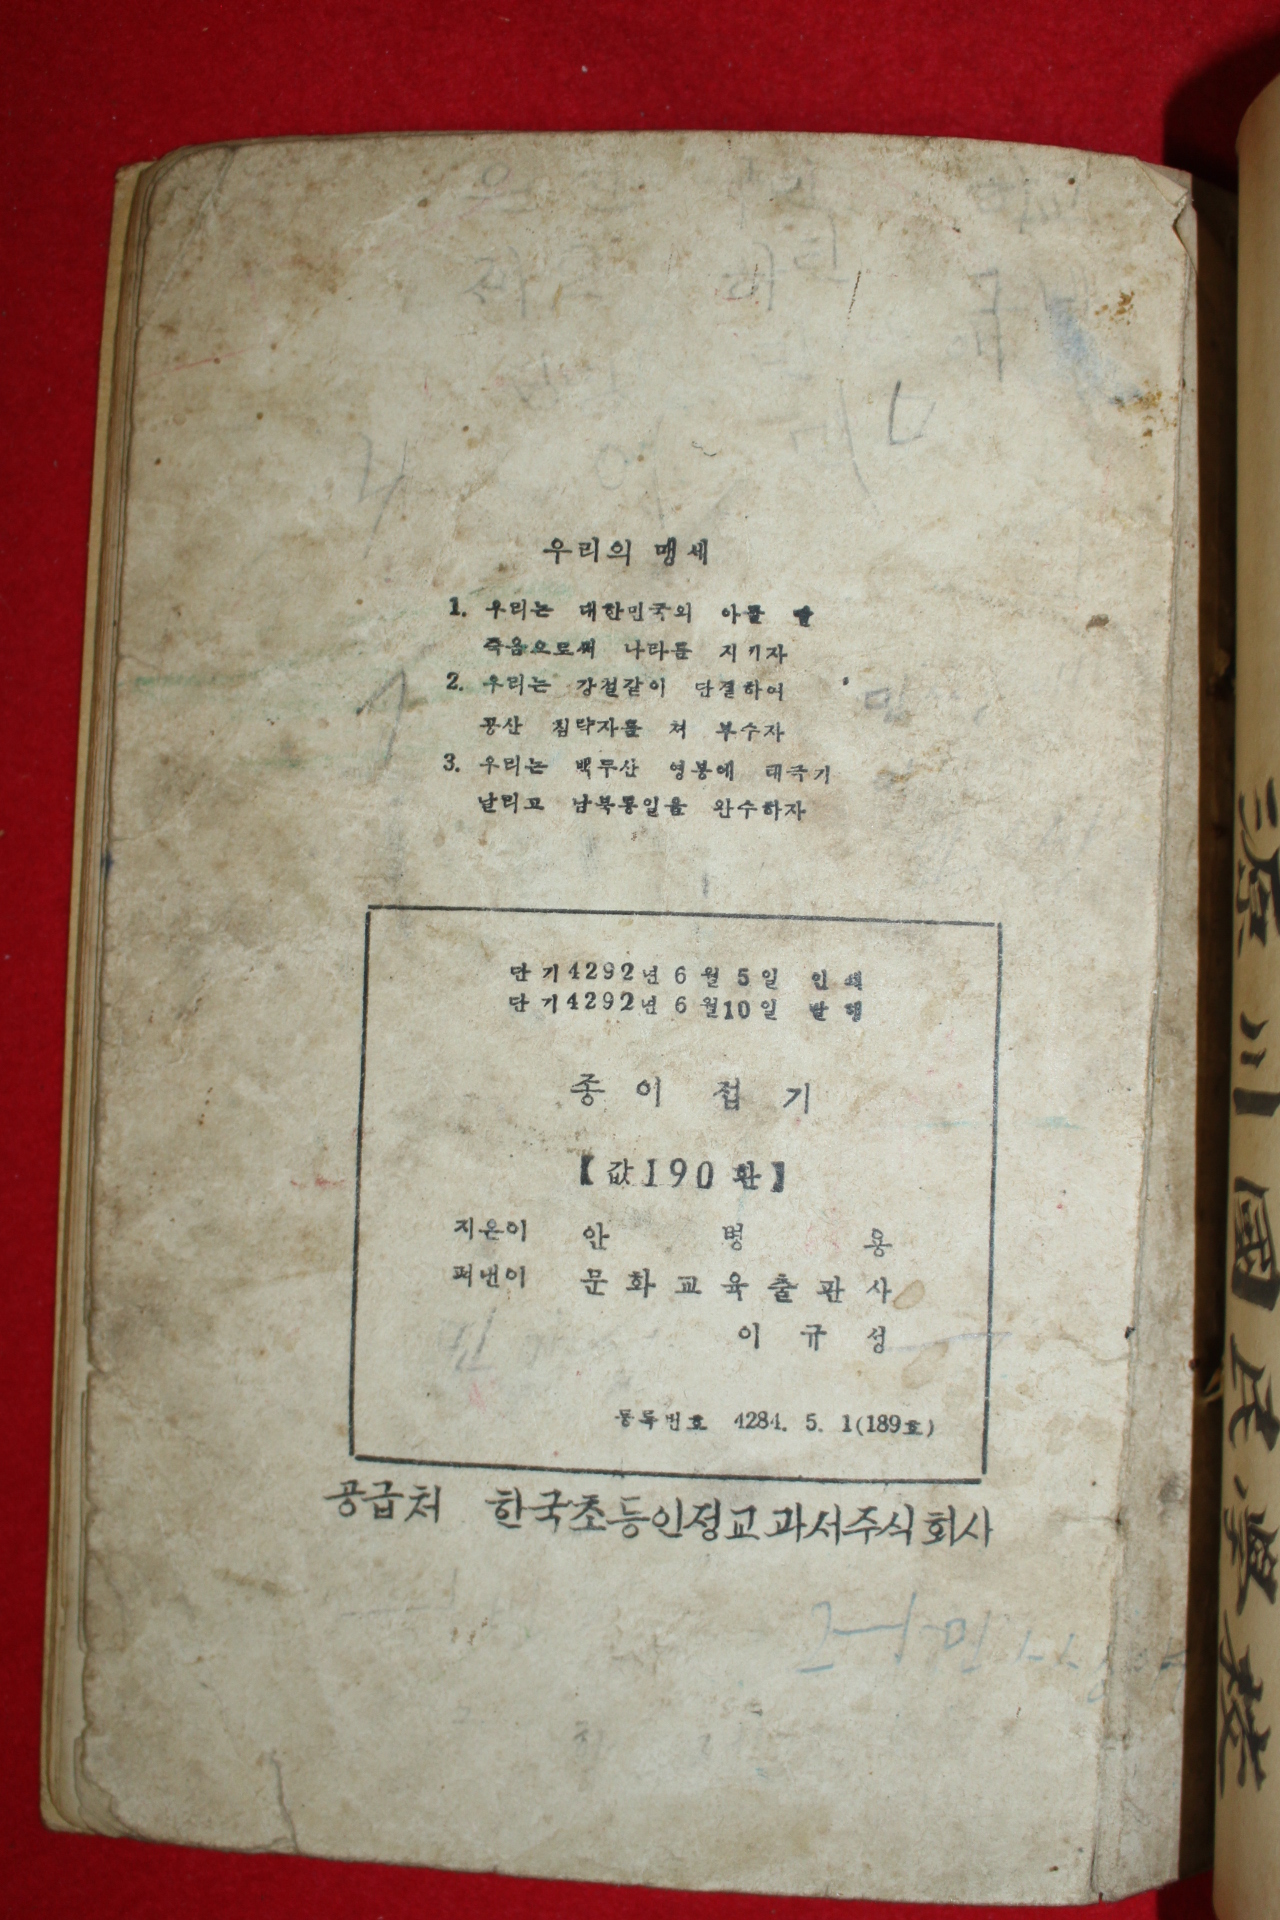 우리의 맹세
1. 우리는 대한민국의 아들 딸
죽음으로써 나라를 지키자
2. 우리는 강철같이 단결하여
공산 침략자를 쳐 부수자
3. 우리는 백두산 영봉에 태극기
날리고 남북통일을 완수하자
단기 4292년 6월 5일 인쇄
단기 4292년 6월 10일 발행
종이 접기
【값 190환】
지은이 안병용
펴낸이 문화교육출판사
이규성
등록번호 4284. 5. 1(189호)
공급처 한국초등인정교과서주식회사
川國民學校